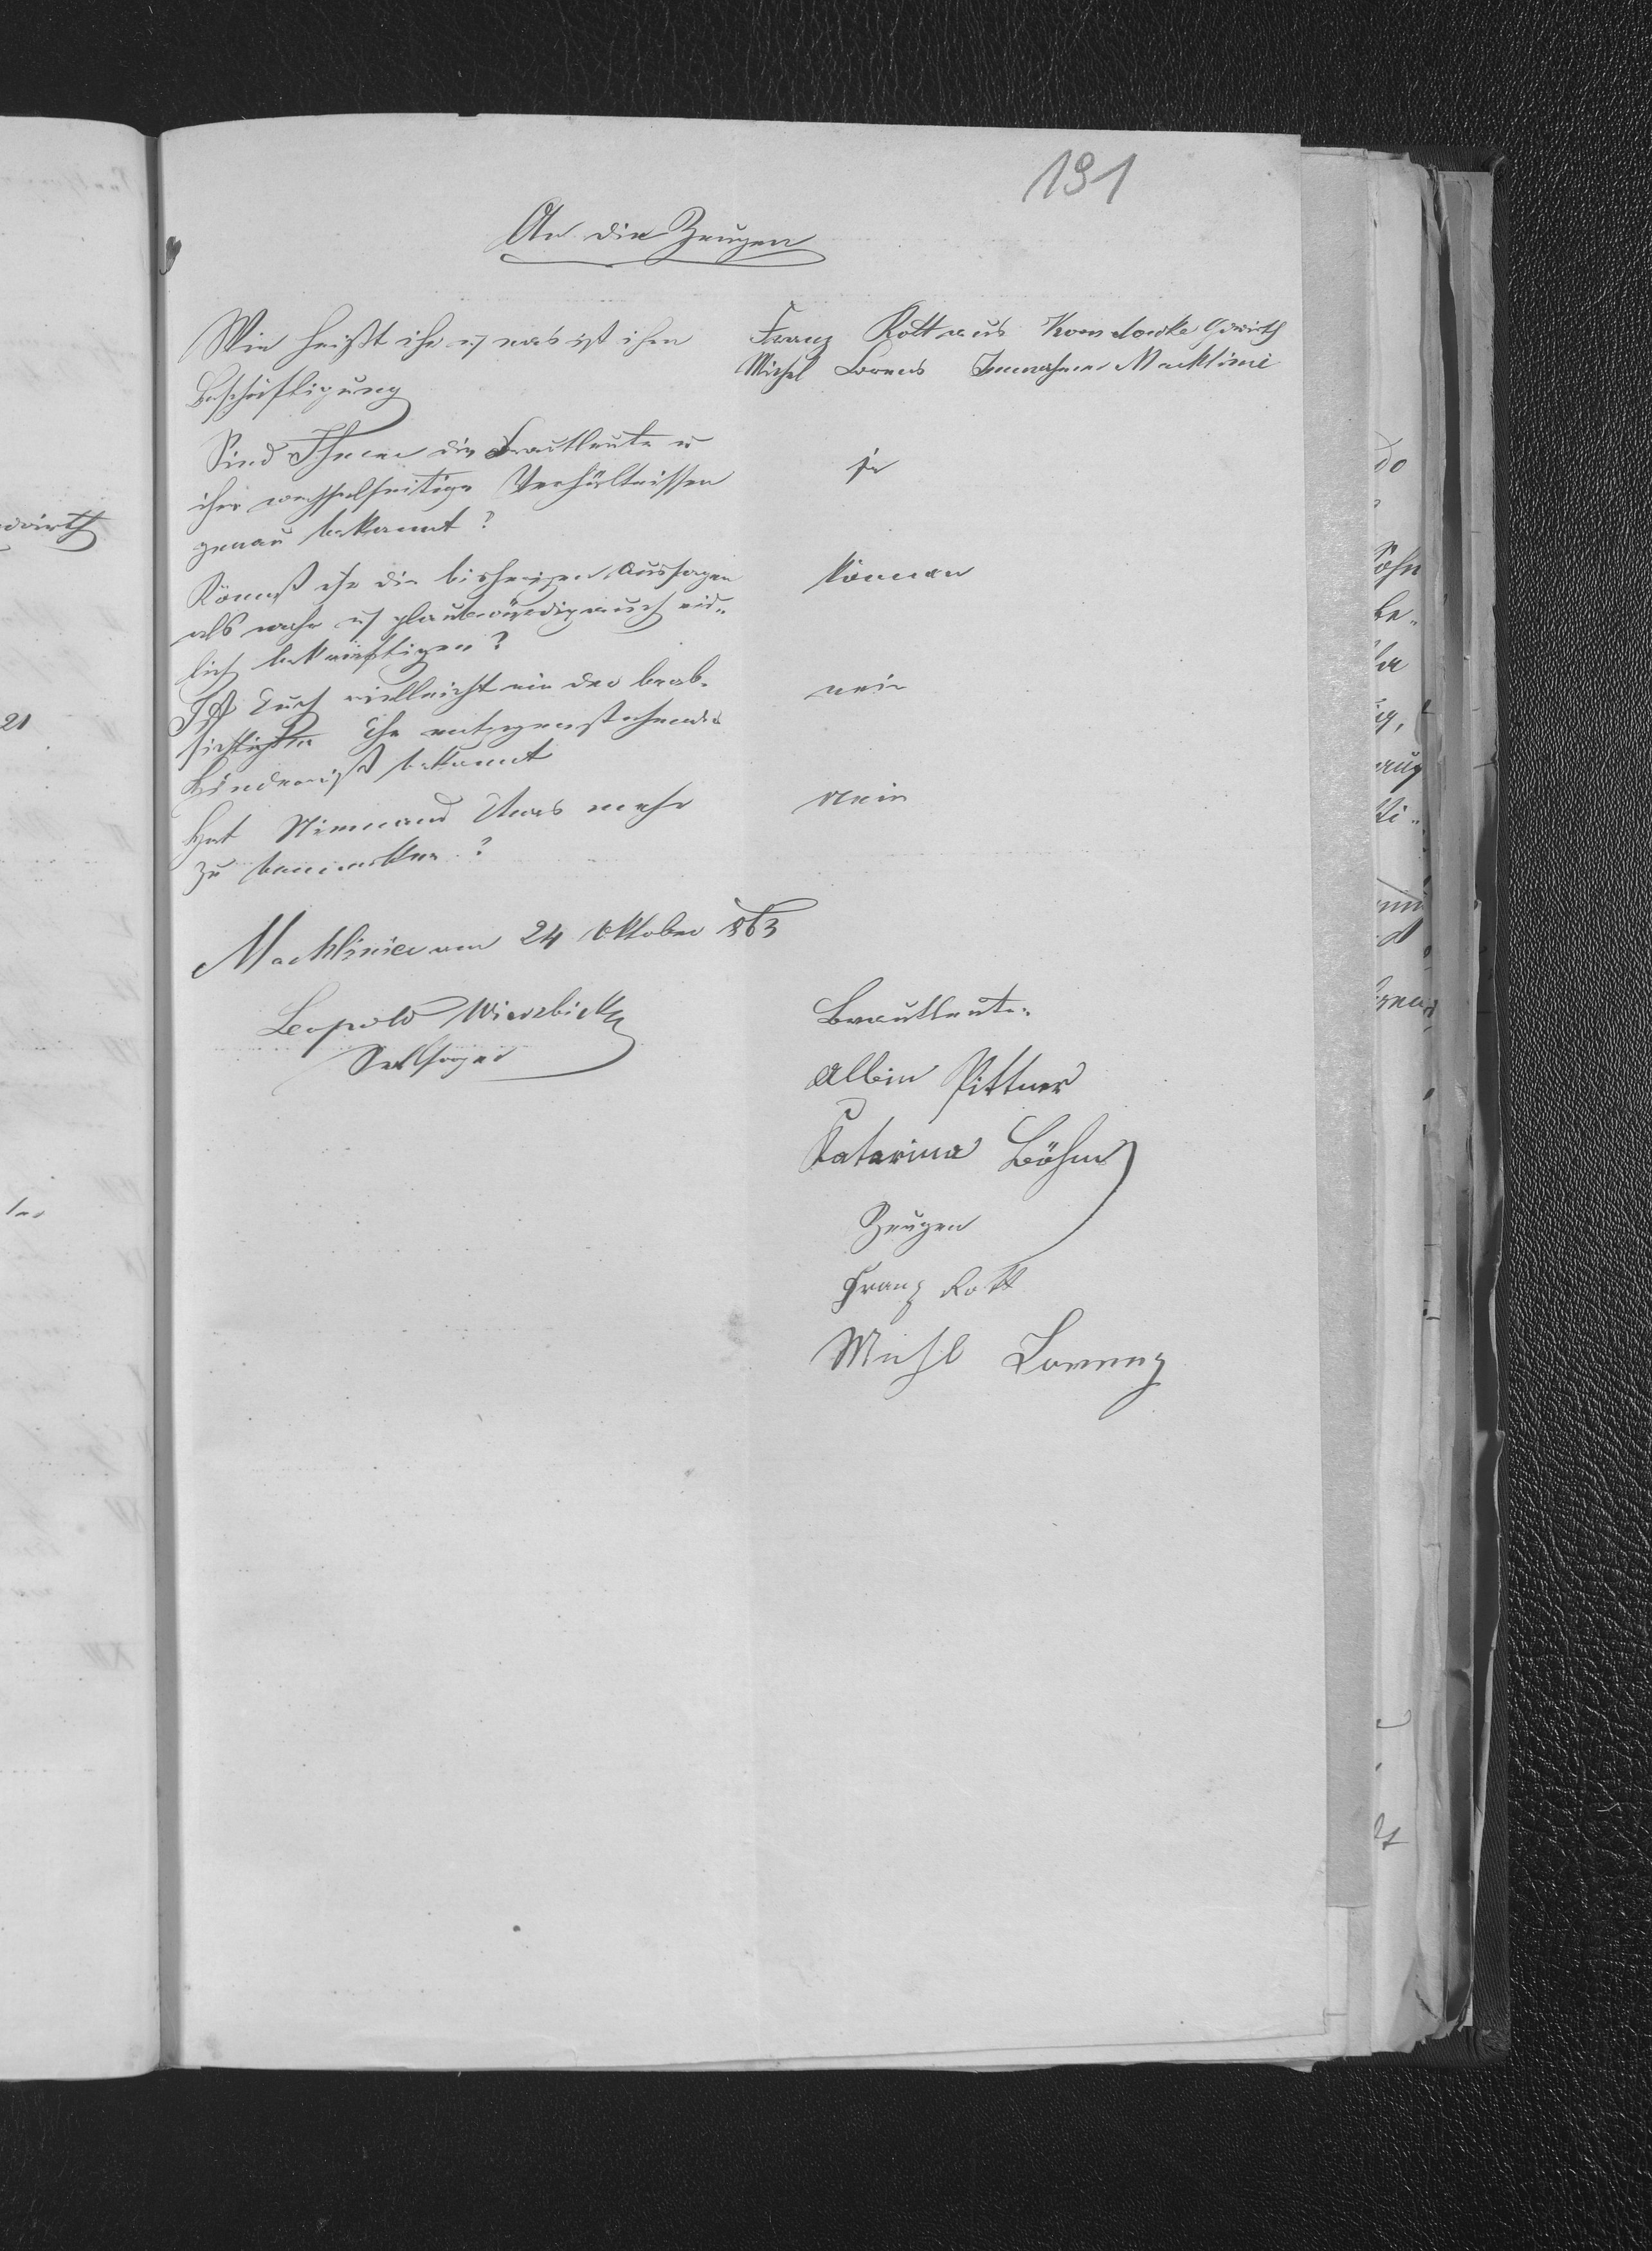 191
An die Zeugen
Wie heißt ihr u was ist ihre
Beschäftigung
Franz Rott aus Korndorke Gwirth
Michl Lorenz Machlinie
Sind Ihnen die Brautleute u
ihre wechselseitige Verhältnissen
genau bekannt?
ja
Könnet ihr die bisherigen Aussagen
als wahr u glaubwürdig auch eid-
lich bekräftigen?
können
Ist Euch vielleicht ein der beab-
sichtigten Ehe entgegenstehendes
Hinderniß bekannt
nein
Hat Niemand Etwas mehr
zu bemerken?
Nein
Machliniec am 24 Oktober 863
Leopold Wierzbicki
Seelsorger
Brautleute:
Albin Pittner
Katarina Böhm
Zeugen
Franz Rott
Michl Lorenz